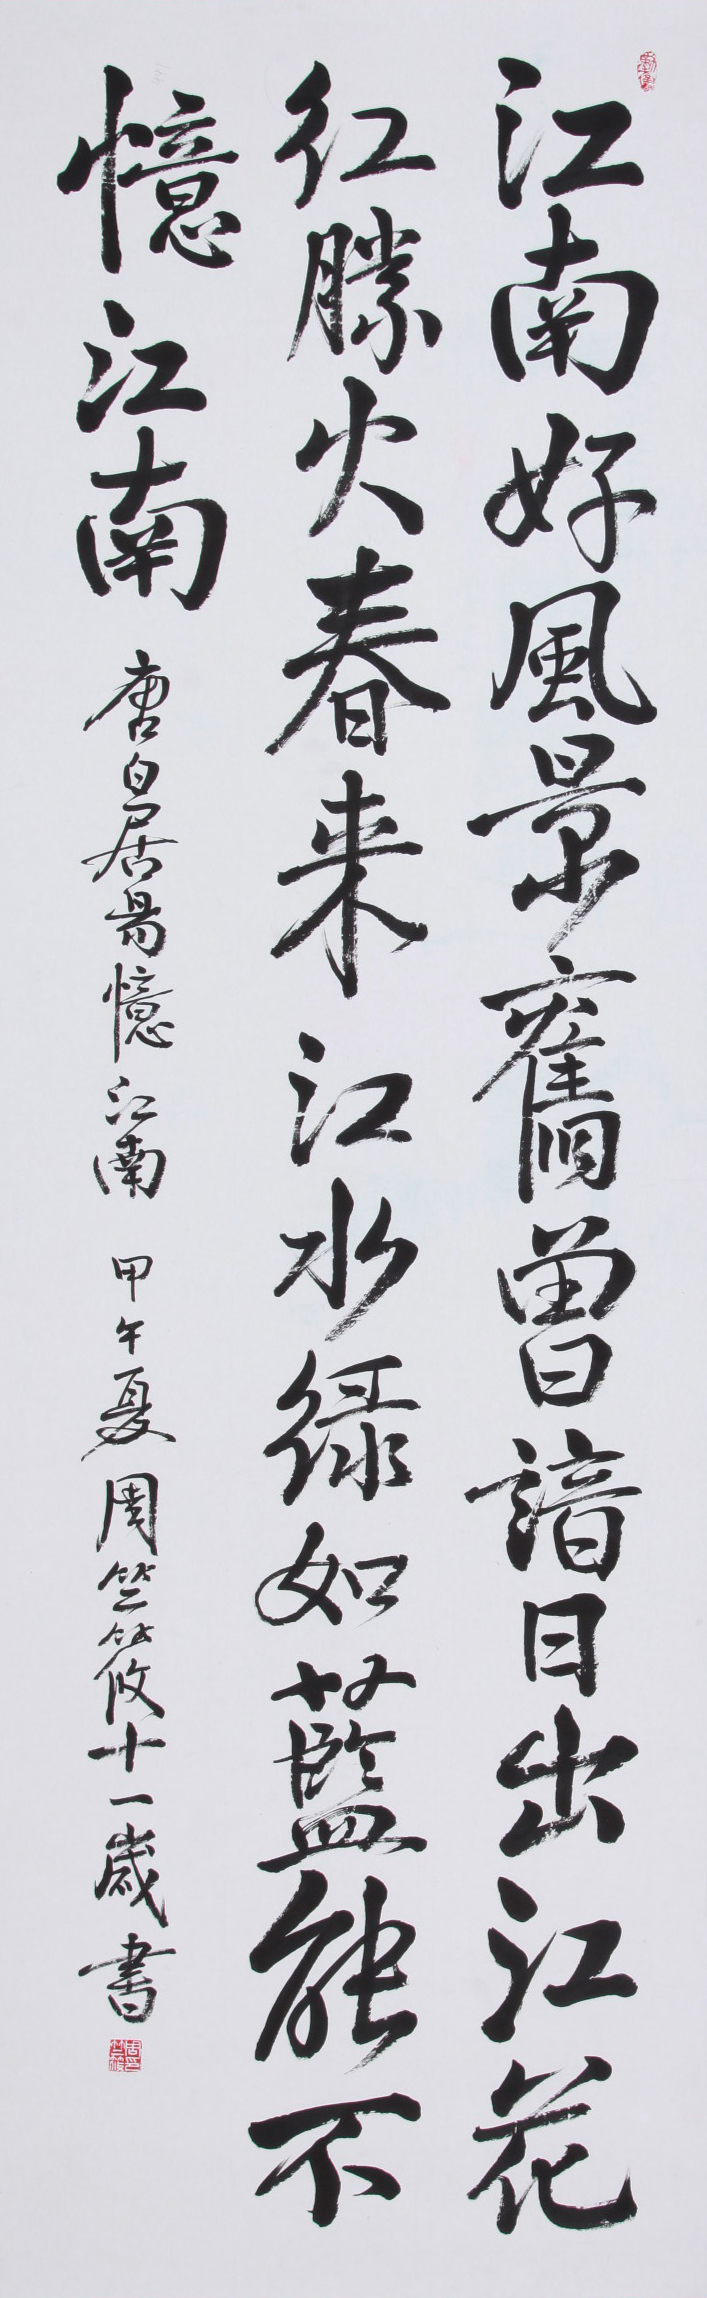 江南好風景舊曾諳日出江花
红勝火春来江水绿如藍能不
憶江南
唐白居易憶江南 甲午夏周竺筱十一歲書